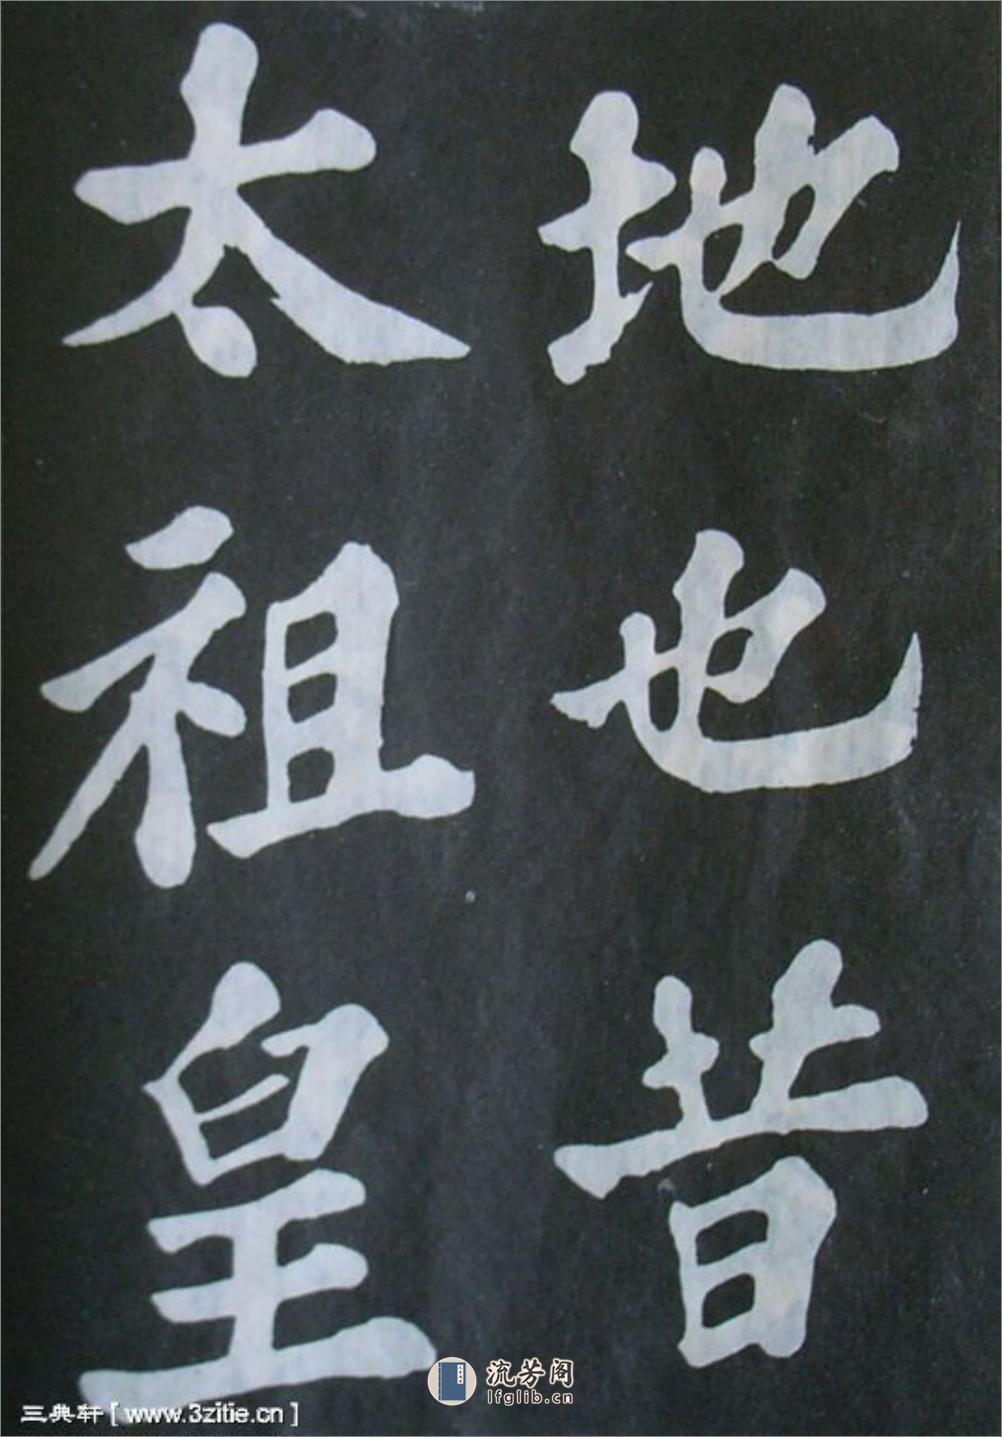 地也昔
太祖皇
三典轩[www.3zitie.cn]
流芳阁
lfglib.cn